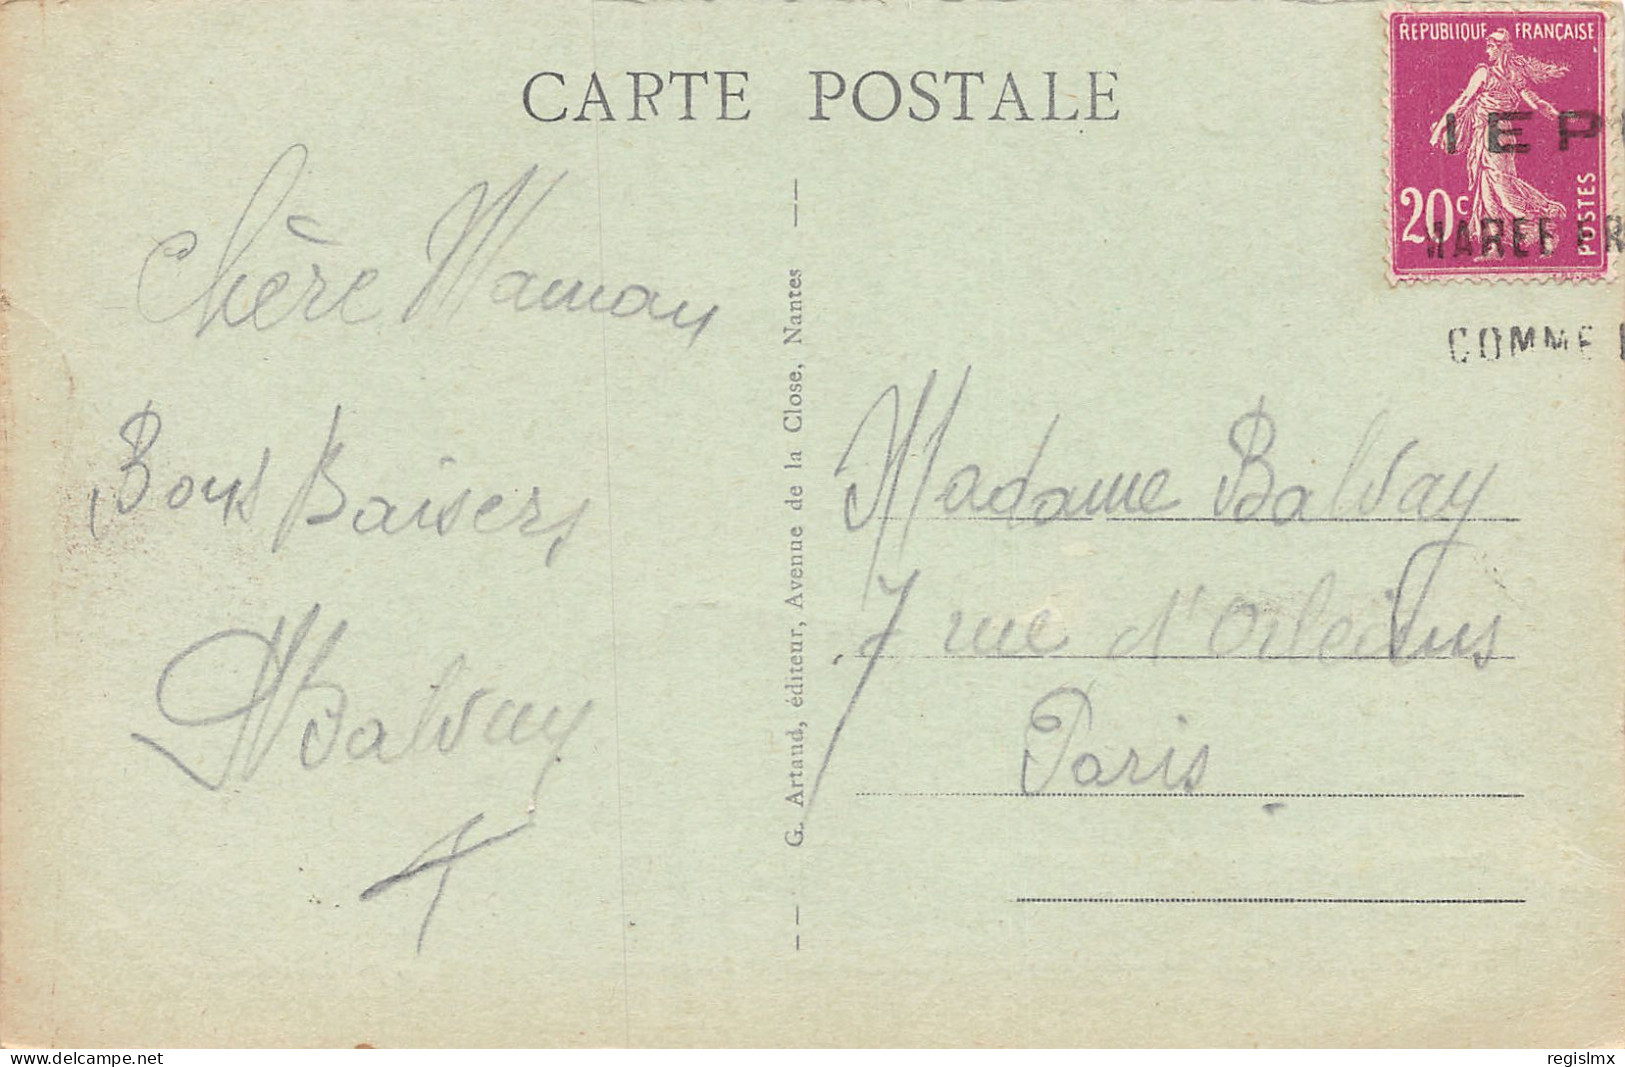 CARTE POSTALE
RÉPUBLIQUE FRANÇAISE
20c
POSTES
IEP
MAREE FR
COMME
Chère Maman
Bons Baisers
Balvay
G. Artaud, éditeur, Avenue de la Close, Nantes
Madame Balvay
7 rue d'Orléans
Paris
delcampe.net
regislmx